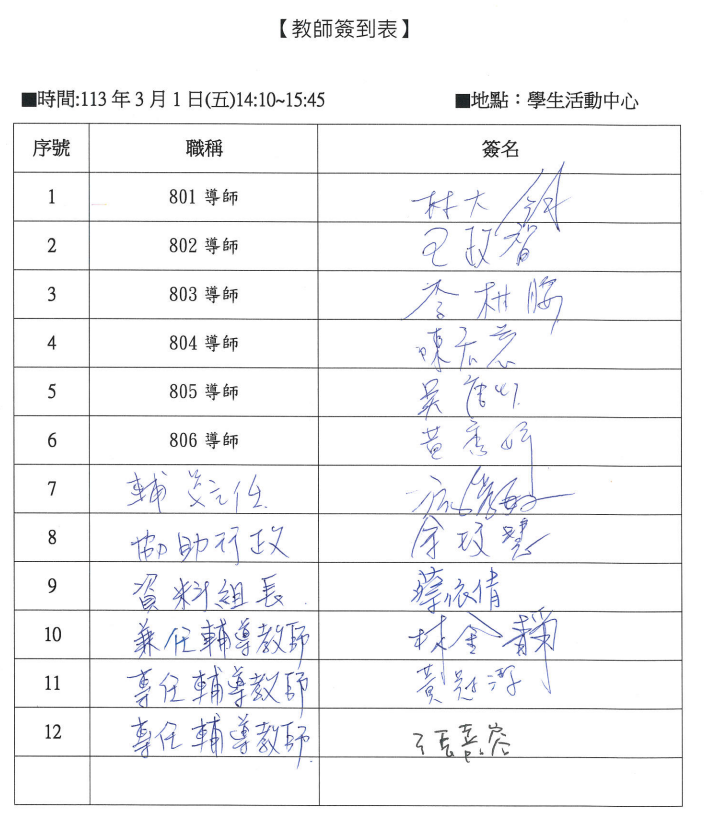 【教師簽到表】
■時間:113 年 3 月 1 日(五)14:10~15:45 ■地點：學生活動中心
序號 職稱 簽名
1 801 導師 林大
2 802 導師 王政智
3 803 導師 李
4 804 導師 陳君
5 805 導師 吳
6 806 導師 黃秀婷
7 輔 主任
8 協助行政 余玟慧
9 資料組長 蔡依倩
10 兼任輔導教師 林金靜
11 專任輔導教師 黃
12 專任輔導教師 張嘉容